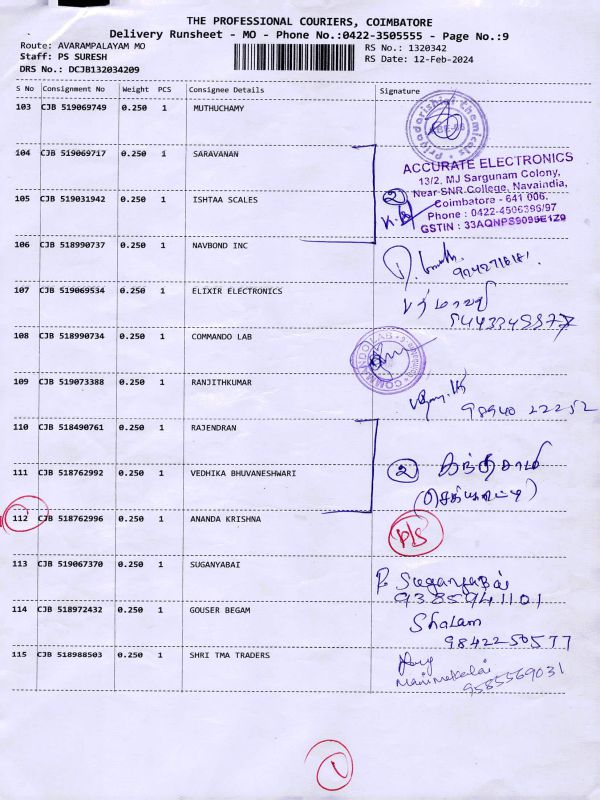 THE PROFESSIONAL COURIERS, COIMBATORE
Delivery Runsheet - MO - Phone No.:0422-3505555 - Page No.:9
Route: AVARAMPALAYAM MO
RS No.: 1320342
Staff: PS SURESH
RS Date: 12-Feb-2024
DRS No.: DCJB132034209
S No Consignment No Weight PCS Consignee Details Signature
103 CJB 519069749 0.250 1 MUTHUCHAMY
104 CJB 519069717 0.250 1 SARAVANAN
ACCURATE ELECTRONICS
13/2, MJ Sargunam Colony,
Near SNR College, Navaindia,
Coimbatore - 641 006.
Phone : 0422-4506396/97
GSTIN : 33AQNPS9096E1Z9
2
105 CJB 519031942 0.250 1 ISHTAA SCALES
106 CJB 518990737 0.250 1 NAVBOND INC
107 CJB 519069534 0.250 1 ELIXIR ELECTRONICS
108 CJB 518990734 0.250 1 COMMANDO LAB
COMMANDO LAB
109 CJB 519073388 0.250 1 RANJITHKUMAR
98940 22252
110 CJB 518490761 0.250 1 RAJENDRAN
111 CJB 518762992 0.250 1 VEDHIKA BHUVANESHWARI
2 கந்தசாமி
112 CJB 518762996 0.250 1 ANANDA KRISHNA
P/S
113 CJB 519067370 0.250 1 SUGANYABAI
P. Suganyabai
9385941101
114 CJB 518972432 0.250 1 GOUSER BEGAM
Shalam
9842250577
115 CJB 518988503 0.250 1 SHRI TMA TRADERS
Manimekalai
9585569031
1